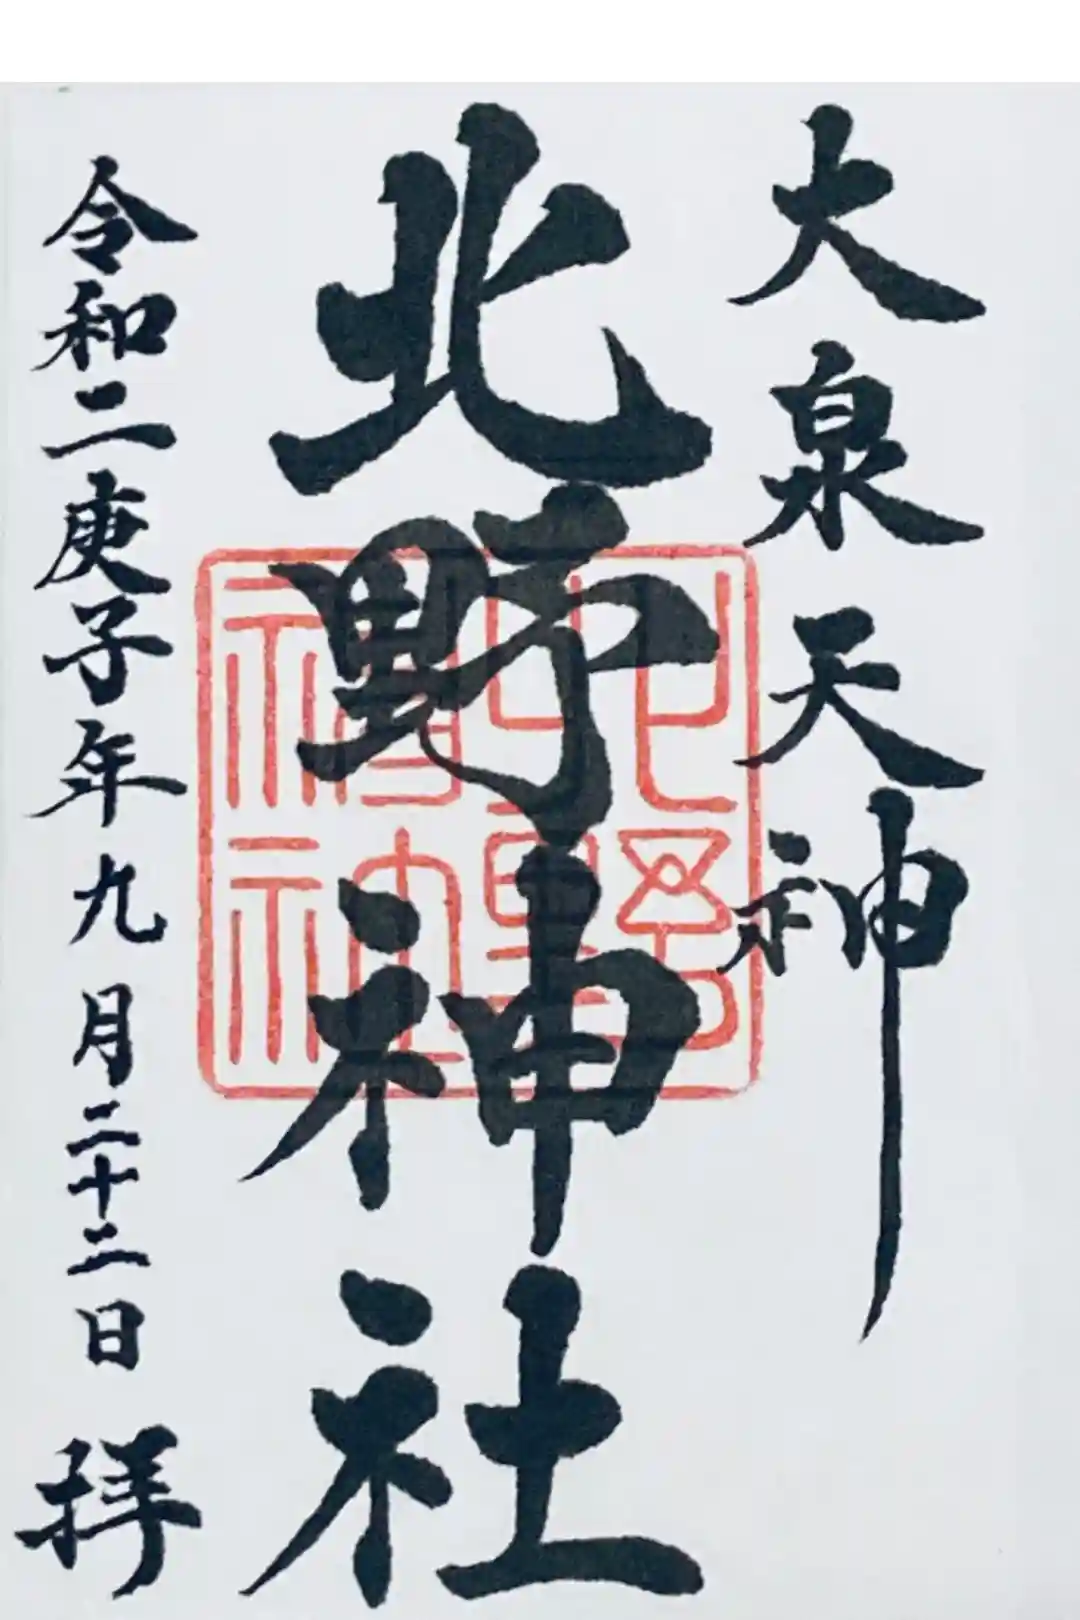 大泉天神
北野神社
令和二庚子年九月二十二日 拝
北野
神社